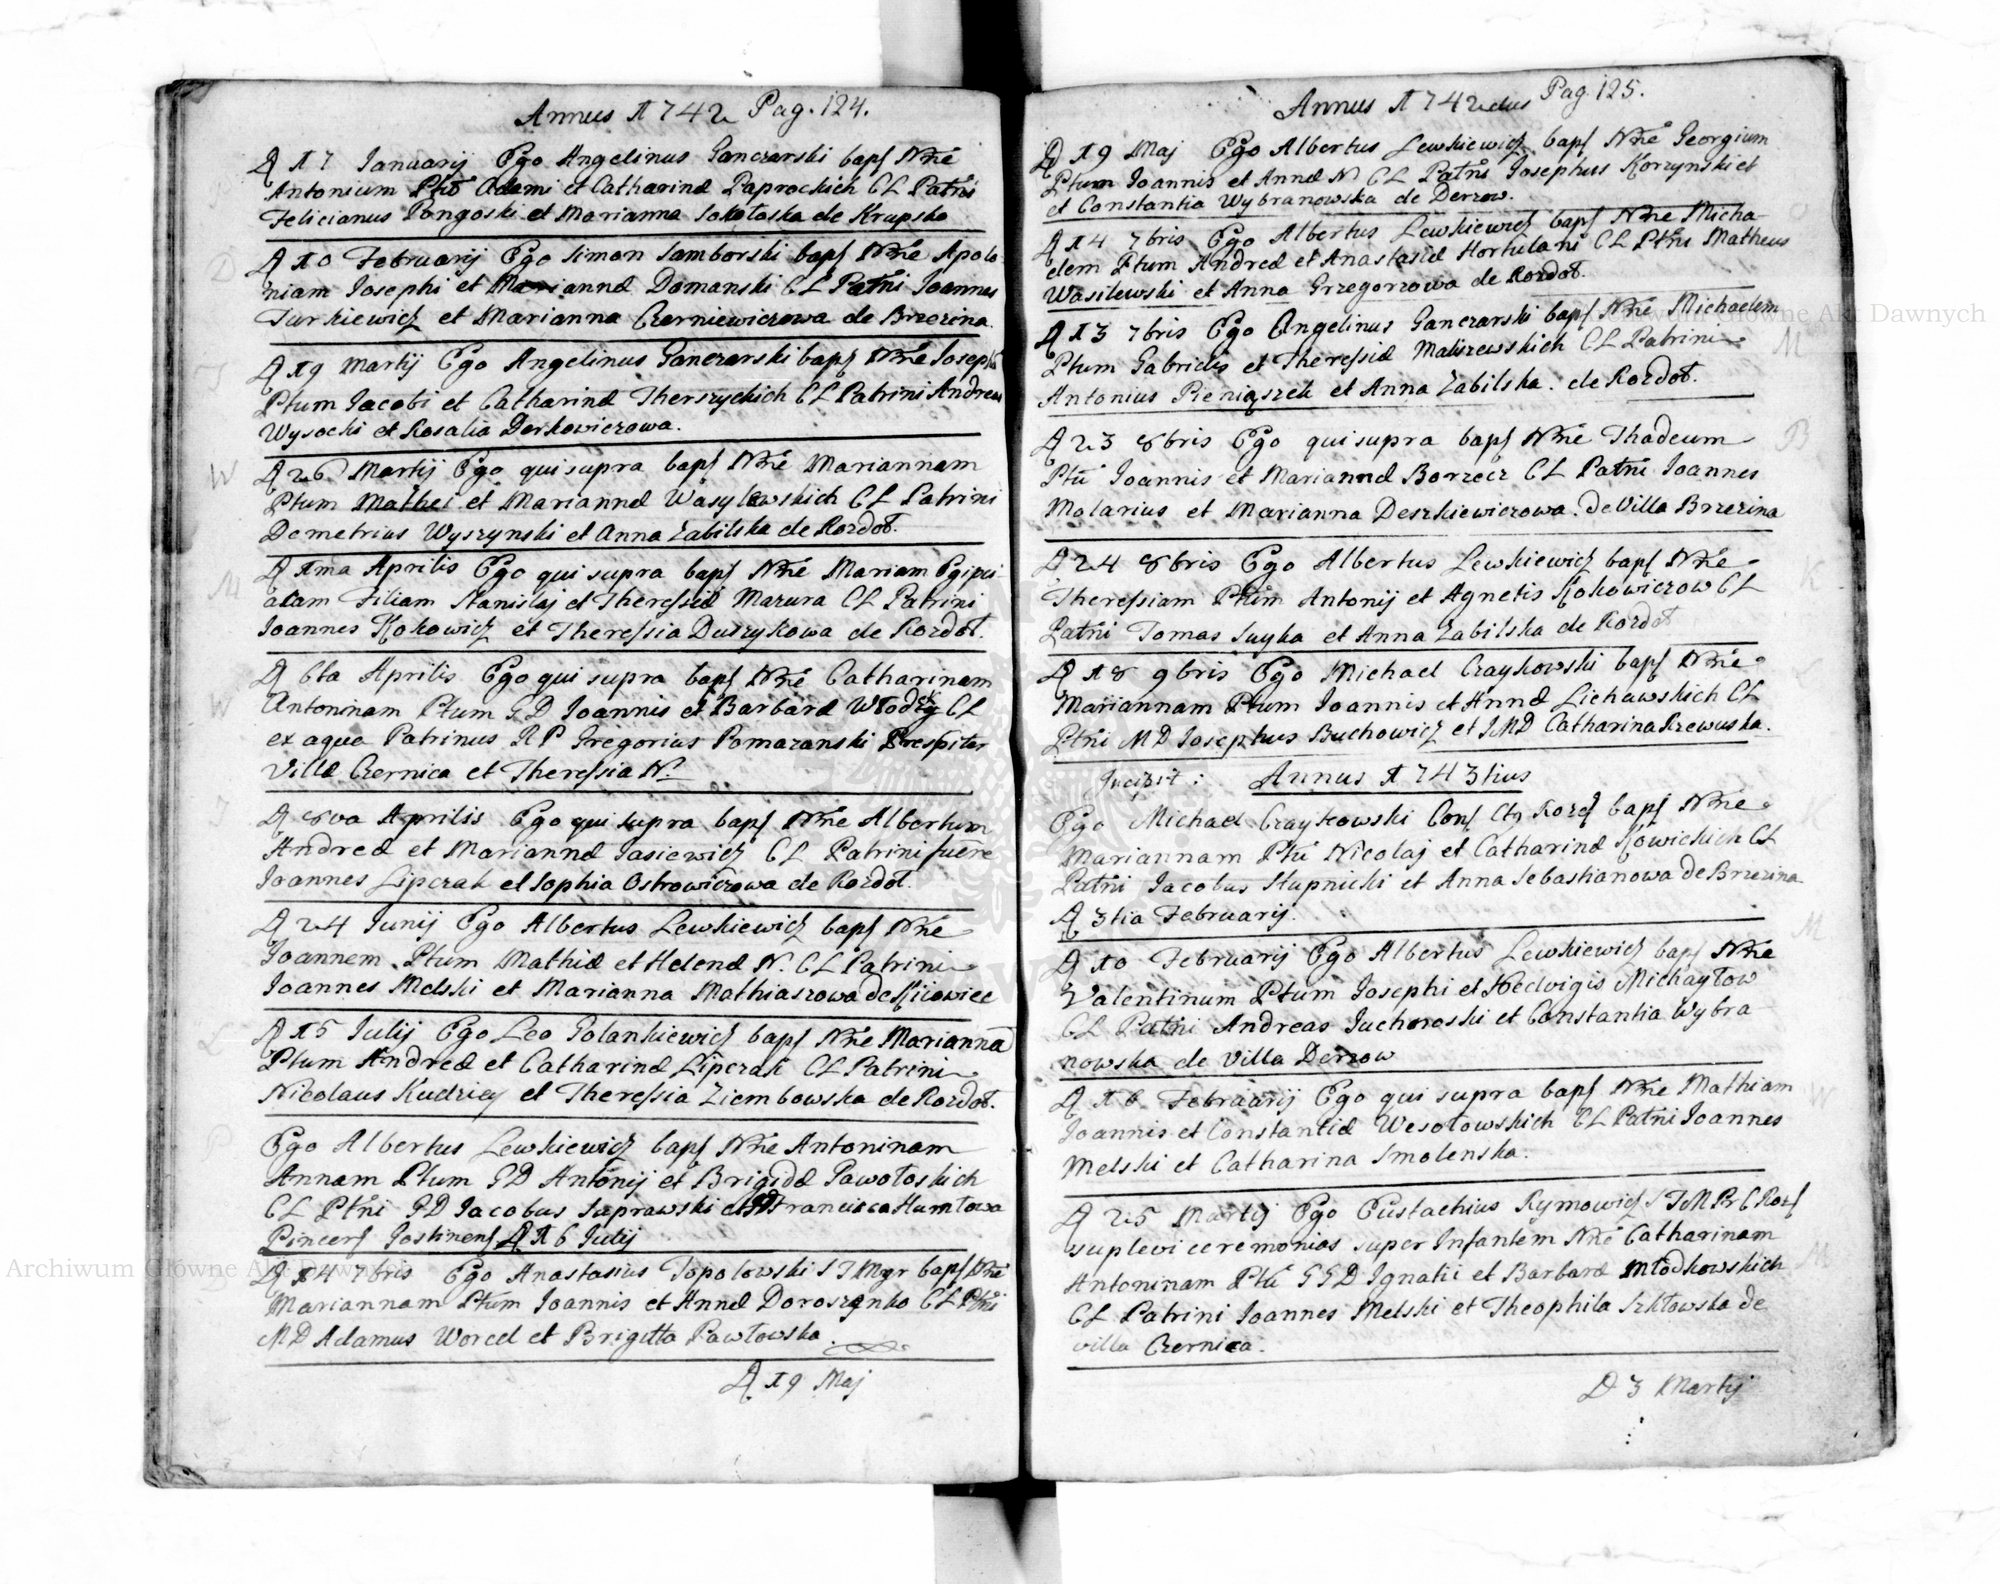 Annus 1742 Pag. 124.
D 17 Januarij Ego Angelinus Ganczarski bapt Nrñe
Antonium Ptrõ Adami et Catharinæ Paprockich CL Patrñi
Felicianus Pongoski et Marianna Sokołoska de Krupsko
D 10 Februarij Ego Simon Samborski bapt Nrñe Apolo-
niam Josephi et Mariannæ Domanski CL Patñi Joannes
Turkiewicz et Marianna Czerniewiczowa de Brzezina.
D 19 Martij Ego Angelinus Ganczarski bapt Nrñe Joseph
Ptum Jacobi et Catharinæ Therszyckich CL Patrini Andreas
Wysocki et Rosalia Derkowiczowa.
D 26 Martij Ego qui supra bapt Nrñe Mariannam
Ptum Mathei et Mariannæ Wasylewskich CL Patrini
Demetrius Wyszynski et Anna Zabilska de Rozdoł.
D 1ma Aprilis Ego qui supra bapt Nrñe Mariam Egipti
acam Filiam Stanislaj et Theressiæ Mazura CL Patrini
Joannes Kokowicz et Theressia Duszykowa de Rozdoł.
D 6ta Aprilis Ego qui supra bapt Nrñe Catharinam
Antoninam Ptum GD Joannis et Barbaræ CL
ex aqua Patrinus RP Gregorius Pomazanski Presbiter
Villæ Czernica et Theressia N.
D 8va Aprilis Ego qui supra bapt Nrñe Albertum
Andreæ et Mariannæ Jasiewicz CL Patrini fuere
Joannes Lipczak et Sophia Ostrowiczowa de Rozdoł.
D 24 Junij Ego Albertus Lewkiewicz bapt Nrñe
Joannem Ptum Mathiæ et Helenæ N. CL Patrini
Joannes Melski et Marianna Mathiaszowa de Kijowiec
D 15 Julij Ego Leo Golankiewicz bapt Nrñe Marianna
Ptum Andreæ et Catharinæ Lipczak CL Patrini
Nicolaus Kudricz et Theressia Ziembowska de Rozdoł.
Ego Albertus Lewkiewicz bapt Nrñe Antoninam
Annam Ptum GD Antonij et Brigidæ Pawołoskich
CL Ptrñi GD Jacobus Suprawski et Francisca Humtowa
Pincers Gostinens D 16 Julij
D 14 7bris Ego Anastasius Topolowski STMgr bapt Nrñe
Mariannam Ptum Joannis et Annæ Doroszenko CL Ptñi
MD Adamus Worcel et Brigitta Pawłowska.
D 19 Maj
Annus 1742dus Pag. 125.
D 19 Maj Ego Albertus Lewkiewicz bapt Nrñe Georgium
Ptum Joannis et Annæ N CL Patñi Josephus Korzynski et
et Constantia Wybranowska de Derzow.
D 14 7bris Ego Albertus Lewkiewicz bapt Nrñe Micha-
elem Ptum Andreæ et Anastasiæ Hortulani CL Ptñi Matheus
Wasilewski et Anna Grzegorzowa de Rozdoł.
D 13 7bris Ego Angelinus Ganczarski bapt Nrñe Michaelem
Ptum Gabrielis et Theressiæ Maliszewskich CL Patrini
Antonius Pieniąszek et Anna Zabilska. de Rozdoł.
D 23 8bris Ego qui supra bapt Nrñe Thadeum
Ptũ Joannis et Mariannæ Borzecz CL Patñi Joannes
Malarius et Marianna Deszkiewiczowa. de Villa Brzezina
D 24 8bris Ego Albertus Lewkiewicz bapt Nrñe
Theressiam Ptũm Antonij et Agnetis Kokowiczow CL
Patñi Tomas Suyka et Anna Zabilska de Rozdoł
D 18 9bris Ego Michael Czaykowski bapt Nrñe
Mariannam Ptum Joannis et Annæ Lichawskich CL
Ptñi MD Josephus Buchowicz et JMD Catharina Rzewuska.
Incipit: Annus 1743tius
Ego Michael Czaykowski Bapt Nrñe
Mariannam Ptũ Nicolaj et Catharinæ Kowickich CL
Patñi Jacobus Stupnicki et Anna Sebastianowa de Brzezina
D 3tia Februarij.
D 10 Februarij Ego Albertus Lewkiewicz bapt Nrñe
Valentinum Ptum Josephi et Hedvigis Michayłow
CL Patñi Andreas Juchnoski et Constantia Wybra-
nowska de Villa Derzow
D 16 Februarij Ego qui supra bapt Nrñe Mathiam
Joannis et Constantiæ Wesołowskich CL Patñi Joannes
Melski et Catharina Smolenska.
D 25 Martij Ego Eustachius Rymowicz
suplevi ceremonias super Infantem Nrñe Catharinam
Antoninam Ptũ GGD Ignatii et Barbaræ Młodkowskich
CL Patrini Joannes Melski et Theophila Szkłowska de
villa Czernica.
D 3 Martij
Archiwum Główne Akt Dawnych
Archiwum Główne Akt Dawnych